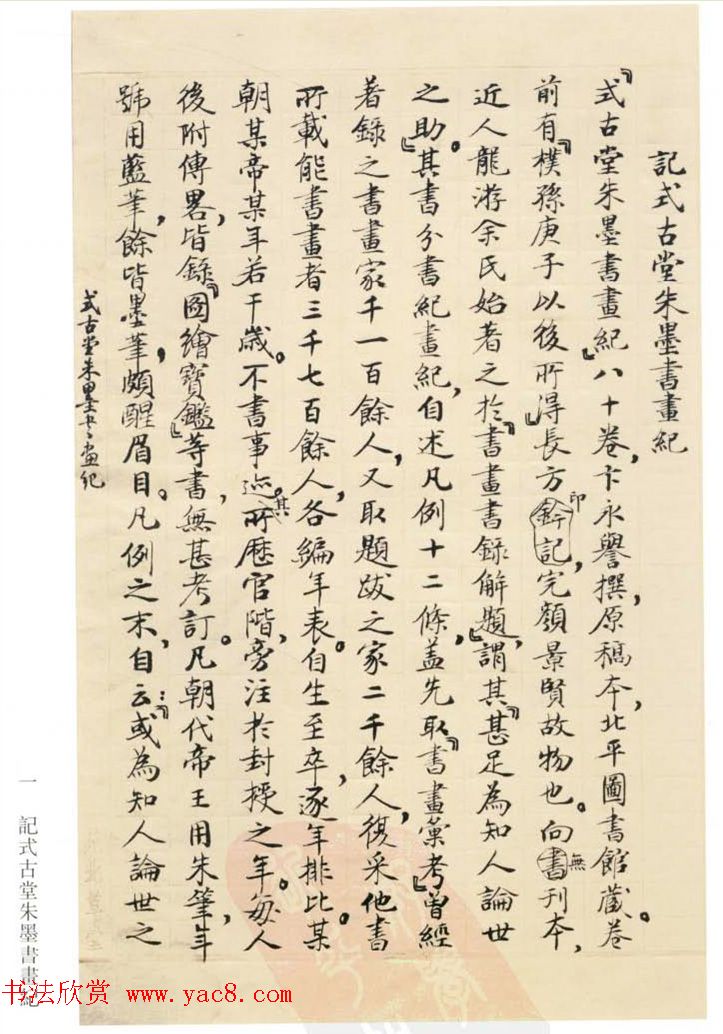 記式古堂朱墨書畫紀
『式古堂朱墨書畫紀』八十卷，卞永譽撰，原稿本，北平圖書館藏。卷
前有『樸孫庚子以後所得』長方鈐記，印完顏景賢故物也。向書無刊本，
近人龍游余氏始著之於『書畫書錄解題』，謂其『甚足為知人論世
之助』。其書分書紀畫紀，自述凡例十二條，蓋先取『書畫彙考』曾經
著錄之書畫家千一百餘人，又取題跋之家二千餘人，復采他書
所載能書畫者三千七百餘人，各編年表。自生至卒，逐年排比。某
朝某帝某年若干歲。不書事迹。其所歷官階，旁注於封授之年。每人
後附傳畧，皆錄『圖繪寶鑑』等書，無甚考訂。凡朝代帝王用朱筆，年
號用藍筆，餘皆墨筆，頗醒眉目。凡例之末，自云：『或為知人論世之
式古堂朱墨书画纪
一 記式古堂朱墨書畫紀
书法欣赏 www.yac8.com